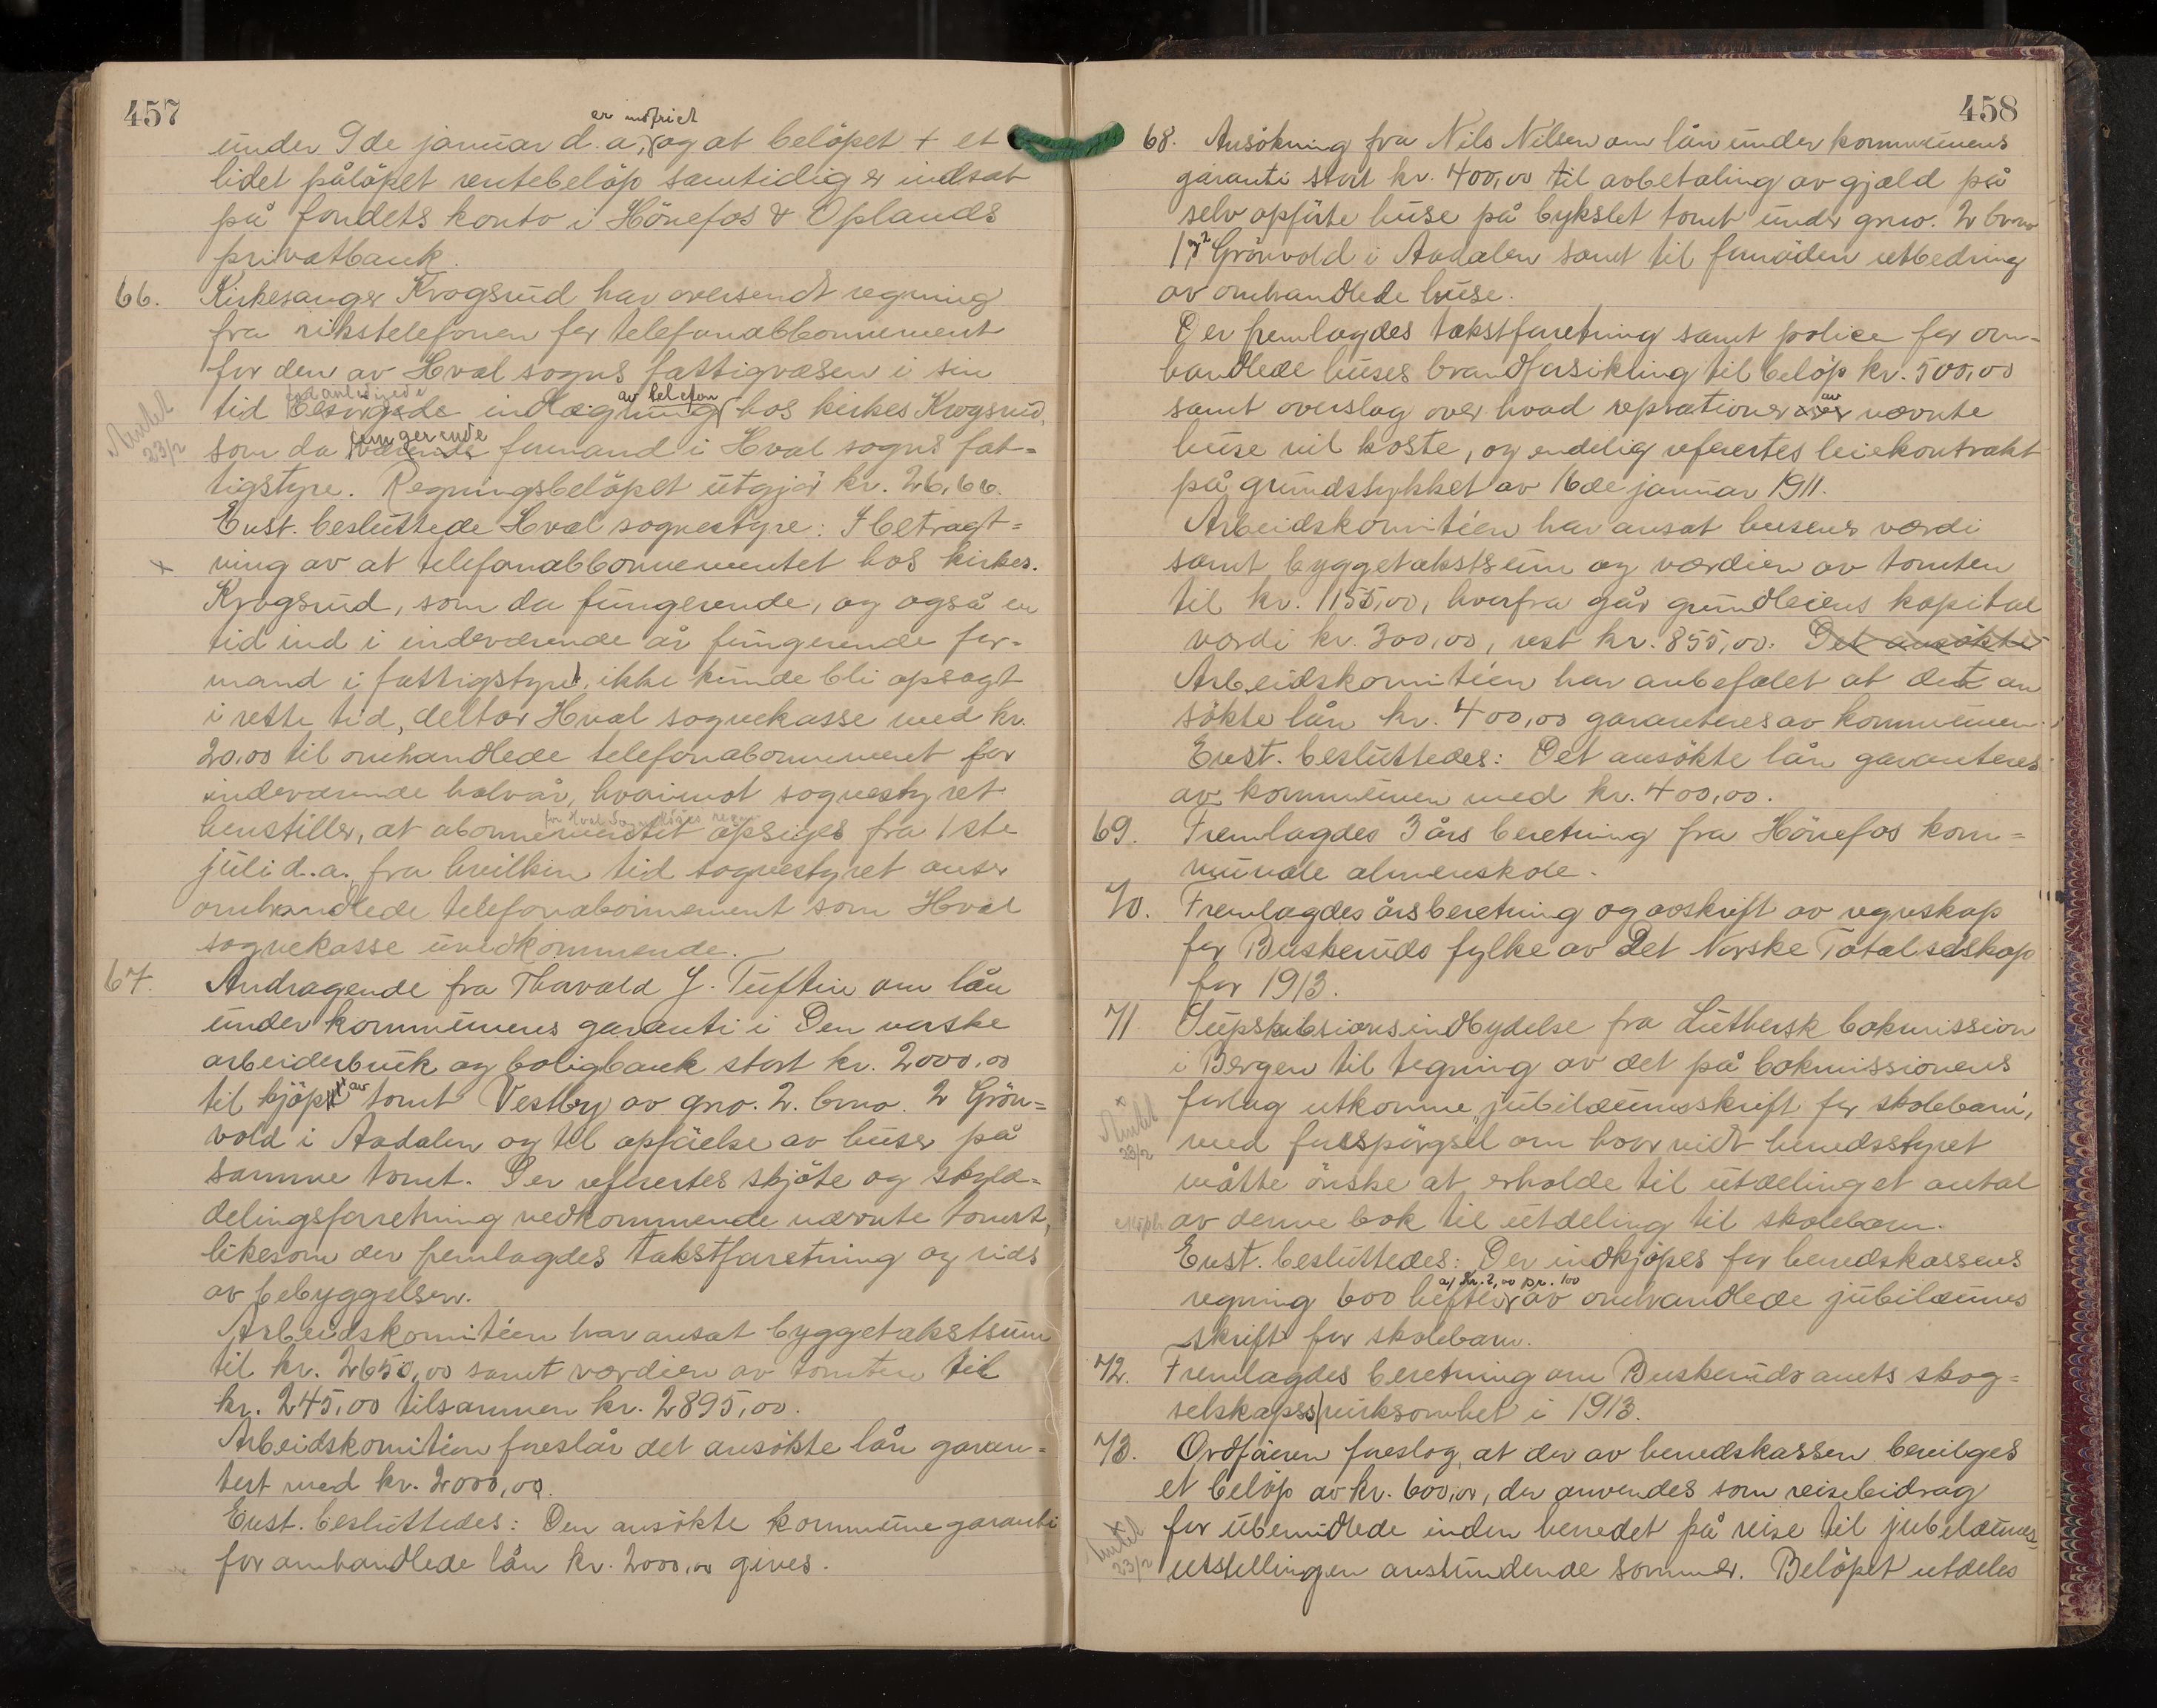 457
er indfriet
under 9de januar d.a., og at belöpet + et
litet pålöpet rentebelöp samtidig er indsat
på fondets konto i Hönefos & Oplands
privatbank.
66. Kirkesanger Krogsrud har oversendt regning
fra rikstelefonen for telefonabbonnement
for den av Hval sogns fattigvæsen i sin
foranledigede av telefon
tid besörgede indlægning hos kirkes. Krogsrud,
Anket
23/2
fungerende
som da værende formand i Hval sogns fat-
tigstyre. Regningsbelöpet utgjör kr. 26,66.
Enst. besluttede Hval sognestyre: I betragt-
x ning av at telefonabbonnementet hos kirkes.
Krogsrud, som da fungerende, og også en
tid ind i indeværende år fungerende for-
mand i fattigstyret, ikke kunde bli opsagt
i rette tid, deltar Hval sognekasse med kr.
20,00 til omhandlede telefonabonnement for
indeværende halvår, hvorimot sognestyret
for Hval Sognekasses regn
henstiller, at abonnementet opsiges fra 1ste
juli d.a., fra hvilken tid sognestyret anser
omhandlede telefonabonnement som Hval
sognekasse uvedkommende.
67. Andragende fra Thorvald J. Tuftin om lån
under kommunens garanti i Den norske
arbeiderbruk og boligbank stort kr. 2000,00
til kjöp av tomt Vestby av gno. 2. bno. 2 Grön-
vold i Aadalen og til opförelse av huser på
samme tomt. Der refertes skjöte og skyld-
delingsforretning vedkommende nævnte tomt,
likesom der fremlagdes takstforretning og rids
av bebyggelsen.
Arbeidskomitéen har ansat byggetakstsum
til kr. 2650,00 samt værdien av tomten til
kr. 245,00 tilsammen kr. 2895,00.
Arbeidskomitéen foreslår det ansökte lån garan-
tert med kr. 2000,00.
Enst. besluttedes: Den ansökte kommunegaranti
for omhandlede lån kr. 2000,00 gives.
458
68. Ansökning fra Nils Nilsen om lån under kommunens
garanti stort kr. 400,00 til avbetaling av gjæld på
selv opförte huse på bykslet tomt under gno. 2 bno
1 og 2 Grönvold i Aadalen samt til fornöden utbedring
av omhandlede huse.
Der fremlagdes takstforretning samt police for om-
handlede huses brandforsikring til belöp kr. 500,00
av
samt overslag over hvad reprationer nævnte
huse vil koste, og endelig refertes leiekontrakt
på grundstykket av 16de januar 1911.
Arbeidskomitéen har ansat husenes værdi
samt byggetakstsum og værdien av tomten
til kr. 1155,00, hvorfra går grundleiens kapital
værdi kr. 300,00, rest kr. 855,00. Det ansökte
Arbeidskomitéen har anbefalet at det an
sökte lån kr. 400,00 garanteres av kommunen.
Enst. besluttedes: Det ansökte lån garanteres
av kommunen med kr. 400,00.
69. Fremlagdes 3 års beretning fra Hönefos kom-
munale almenskole.
70. Fremlagdes årsberetning og avskrift av regnskap
for Buskeruds fylke av Det Norske Totalselskap
for 1913.
71 Supskibsionsindbydelse fra Luthersk bokmission
i Bergen til tegning av det på bokmissionens
forlag utkomne "jubilæumsskrift for skolebarn",
x
Anket
23/2
med forespörgsel om hvorvidt herredsstyret
måtte önske at erholde til utdeling et antal
av denne bok til utdeling til skolebarn.
Enst. besluttedes: Der indkjöpes for herredskassens
a/ kr. 2,00 pr. 100
regning 600 hefter av omhandlede jubilæums
skrift for skolebarn.
72. Fremlagdes beretning om Buskeruds amts skog-
selskaps virksomhet i 1913.
73. Ordföreren foreslog, at der av herredskassen bevilges
et belöp av kr. 600,00, der anvendes som reisebidrag
for ubemidlede inden herredet på reise til jubilæums-
Anket
23/2
utstillingen anstundende sommer. Belöpet utdeles